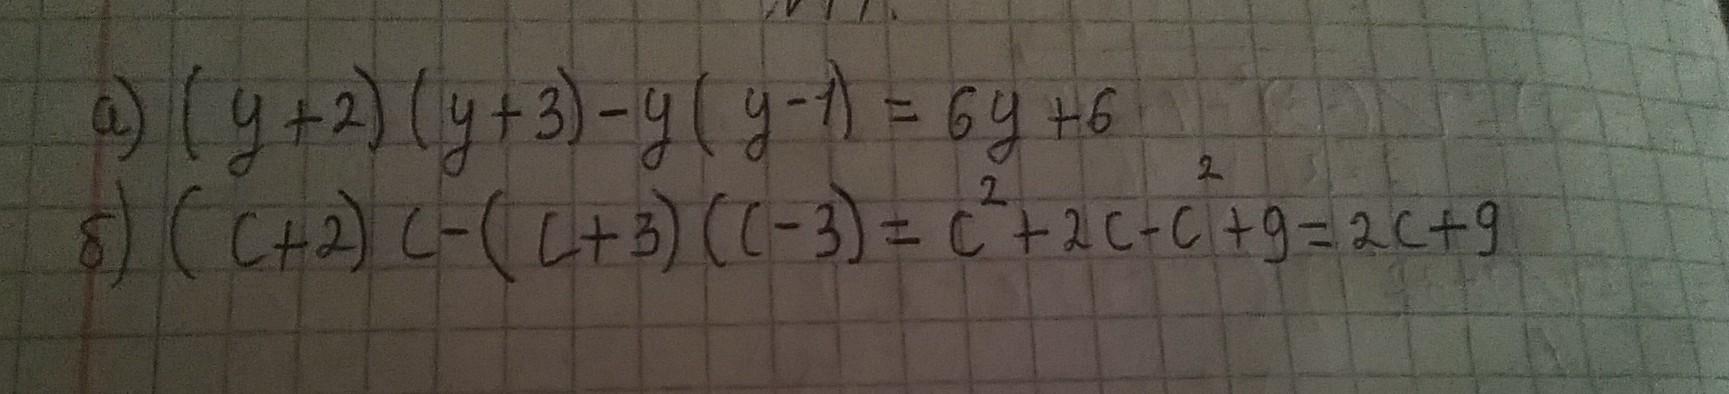 а) (y+2)(y+3)-y(y-1)=6y+6
б) (c+2)c-(c+3)(c-3)=c²+2c-c²+9=2c+9